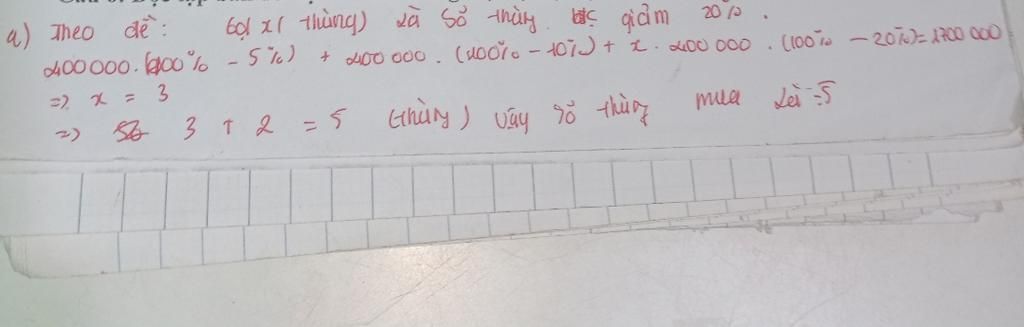 a) Theo đề: Gọi x (thùng) là số thùng được giảm 20%.
400000.(100% - 5%) + 400000.(100% - 10%) + x.400000.(100% - 20%) = 1700000
=> x = 3
=> 3 + 2 = 5 (thùng) vậy số thùng mua là: 5